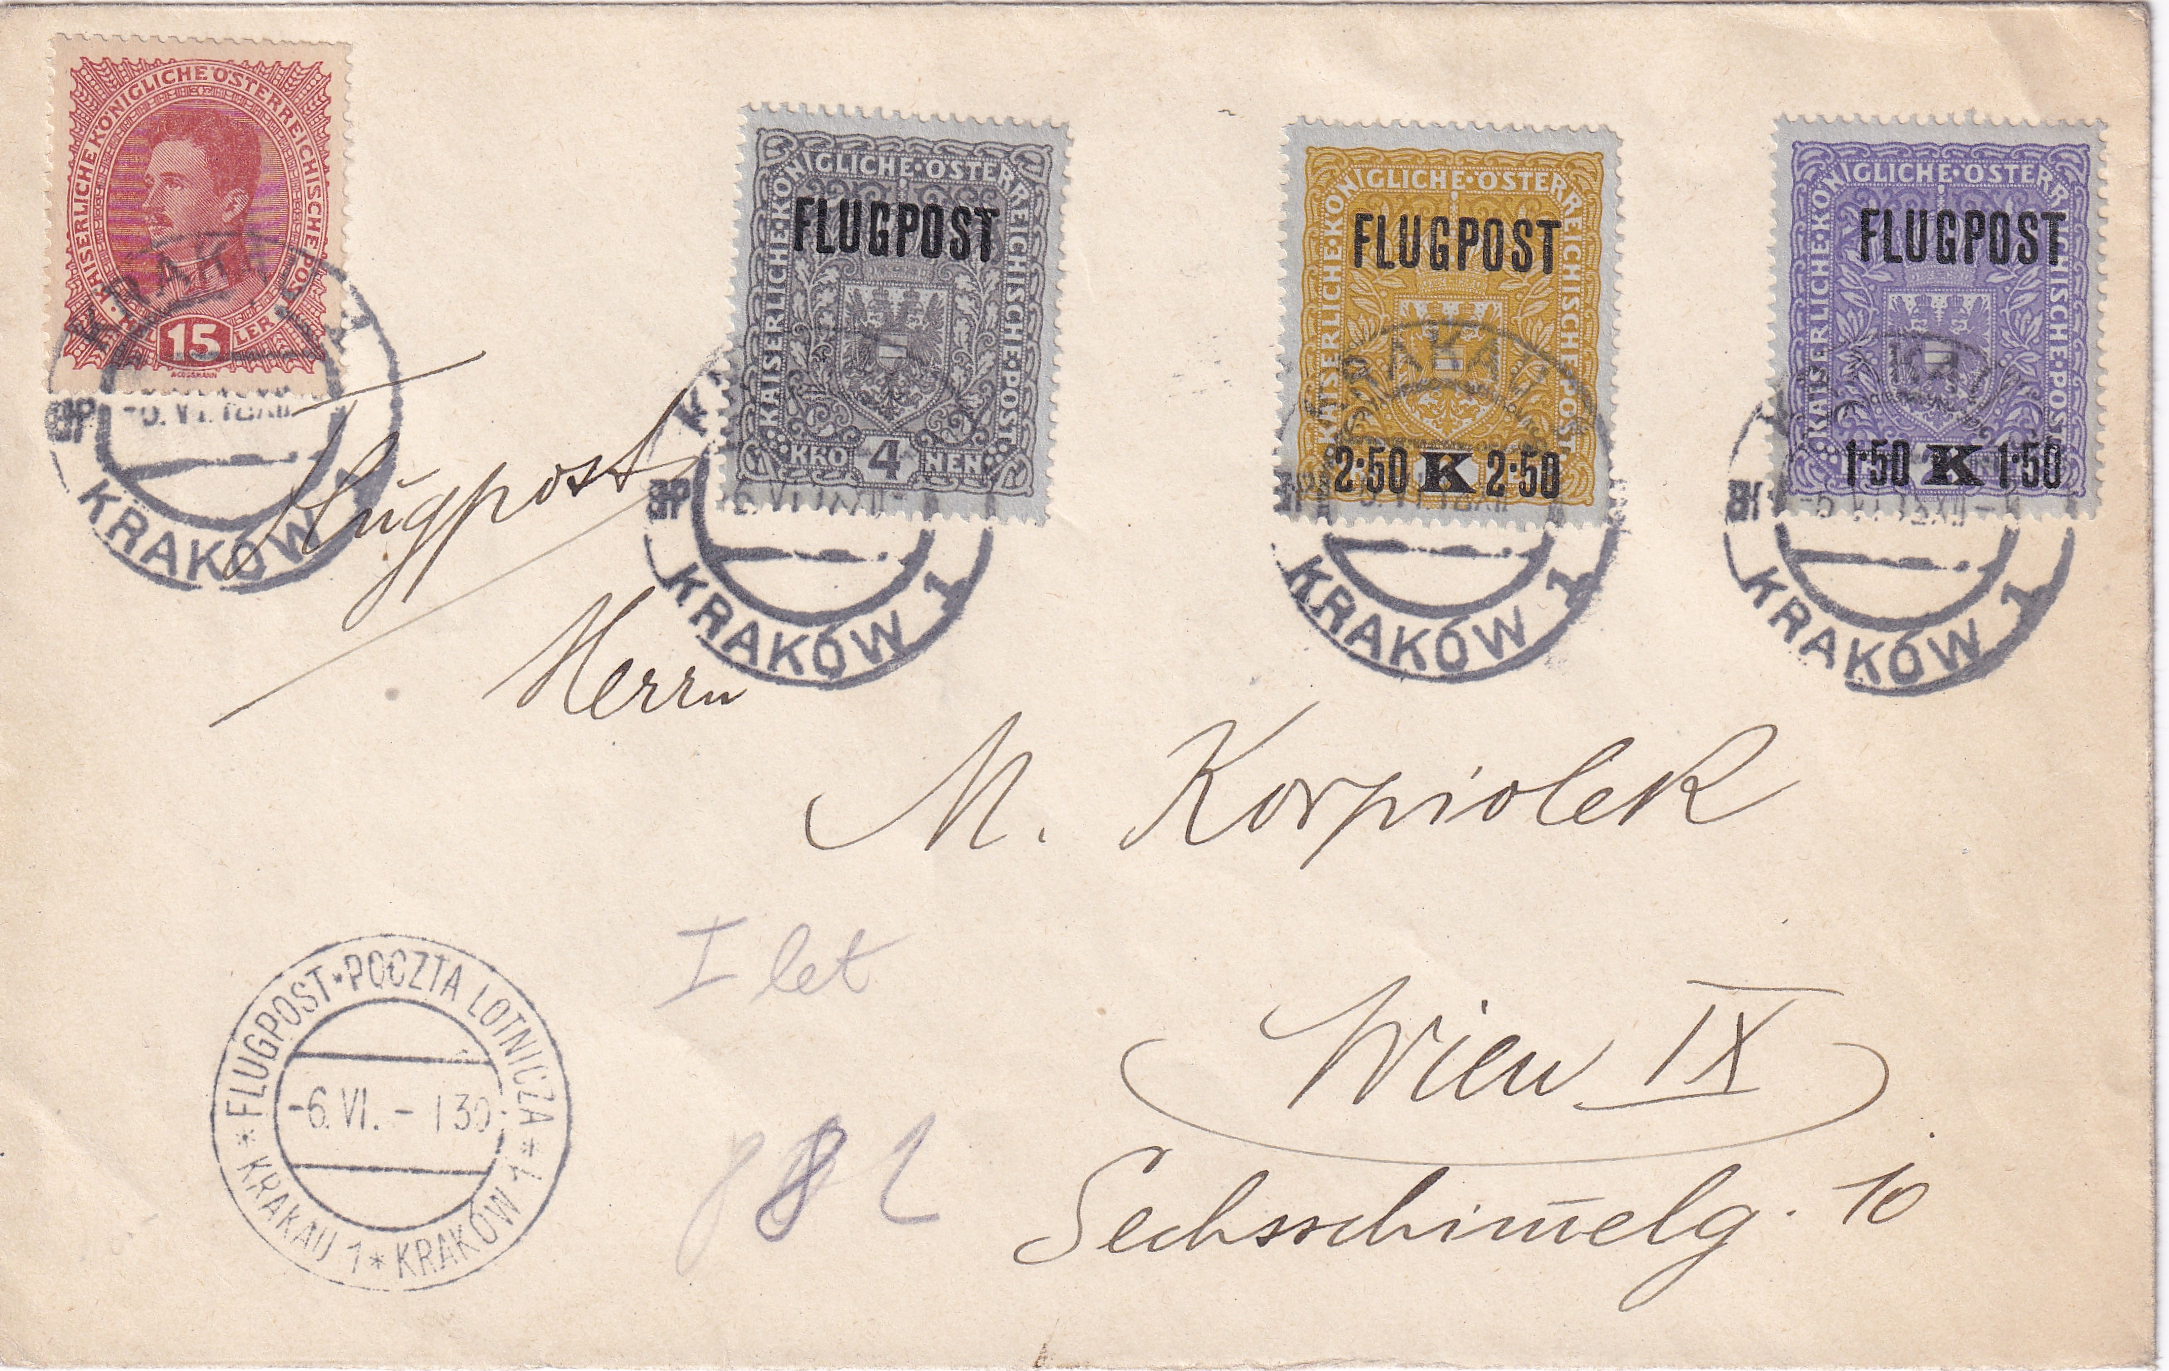 KAISERLICHE KÖNIGLICHE ÖSTERREICHISCHE POST
15 HELLER
KAISERLICHE·KÖNIGLICHE·ÖSTERREICHISCHE·POST
FLUGPOST
KRO 4 NEN
KAISERLICHE·KÖNIGLICHE·ÖSTERREICHISCHE·POST
FLUGPOST
2·50 K 2·50
KAISERLICHE·KÖNIGLICHE·ÖSTERREICHISCHE·POST
FLUGPOST
1·50 K 1·50
KRAKAU 1
KRAKÓW 1
KRAKÓW 1
KRAKÓW 1
KRAKÓW 1
Flugpost
Herrn
M. Korpiolek
I let
Wien IX
Sechsschimmelg. 10
* FLUGPOST * POCZTA LOTNICZA *
-6. VI. - 1 30
KRAKAU 1 * KRAKÓW 1